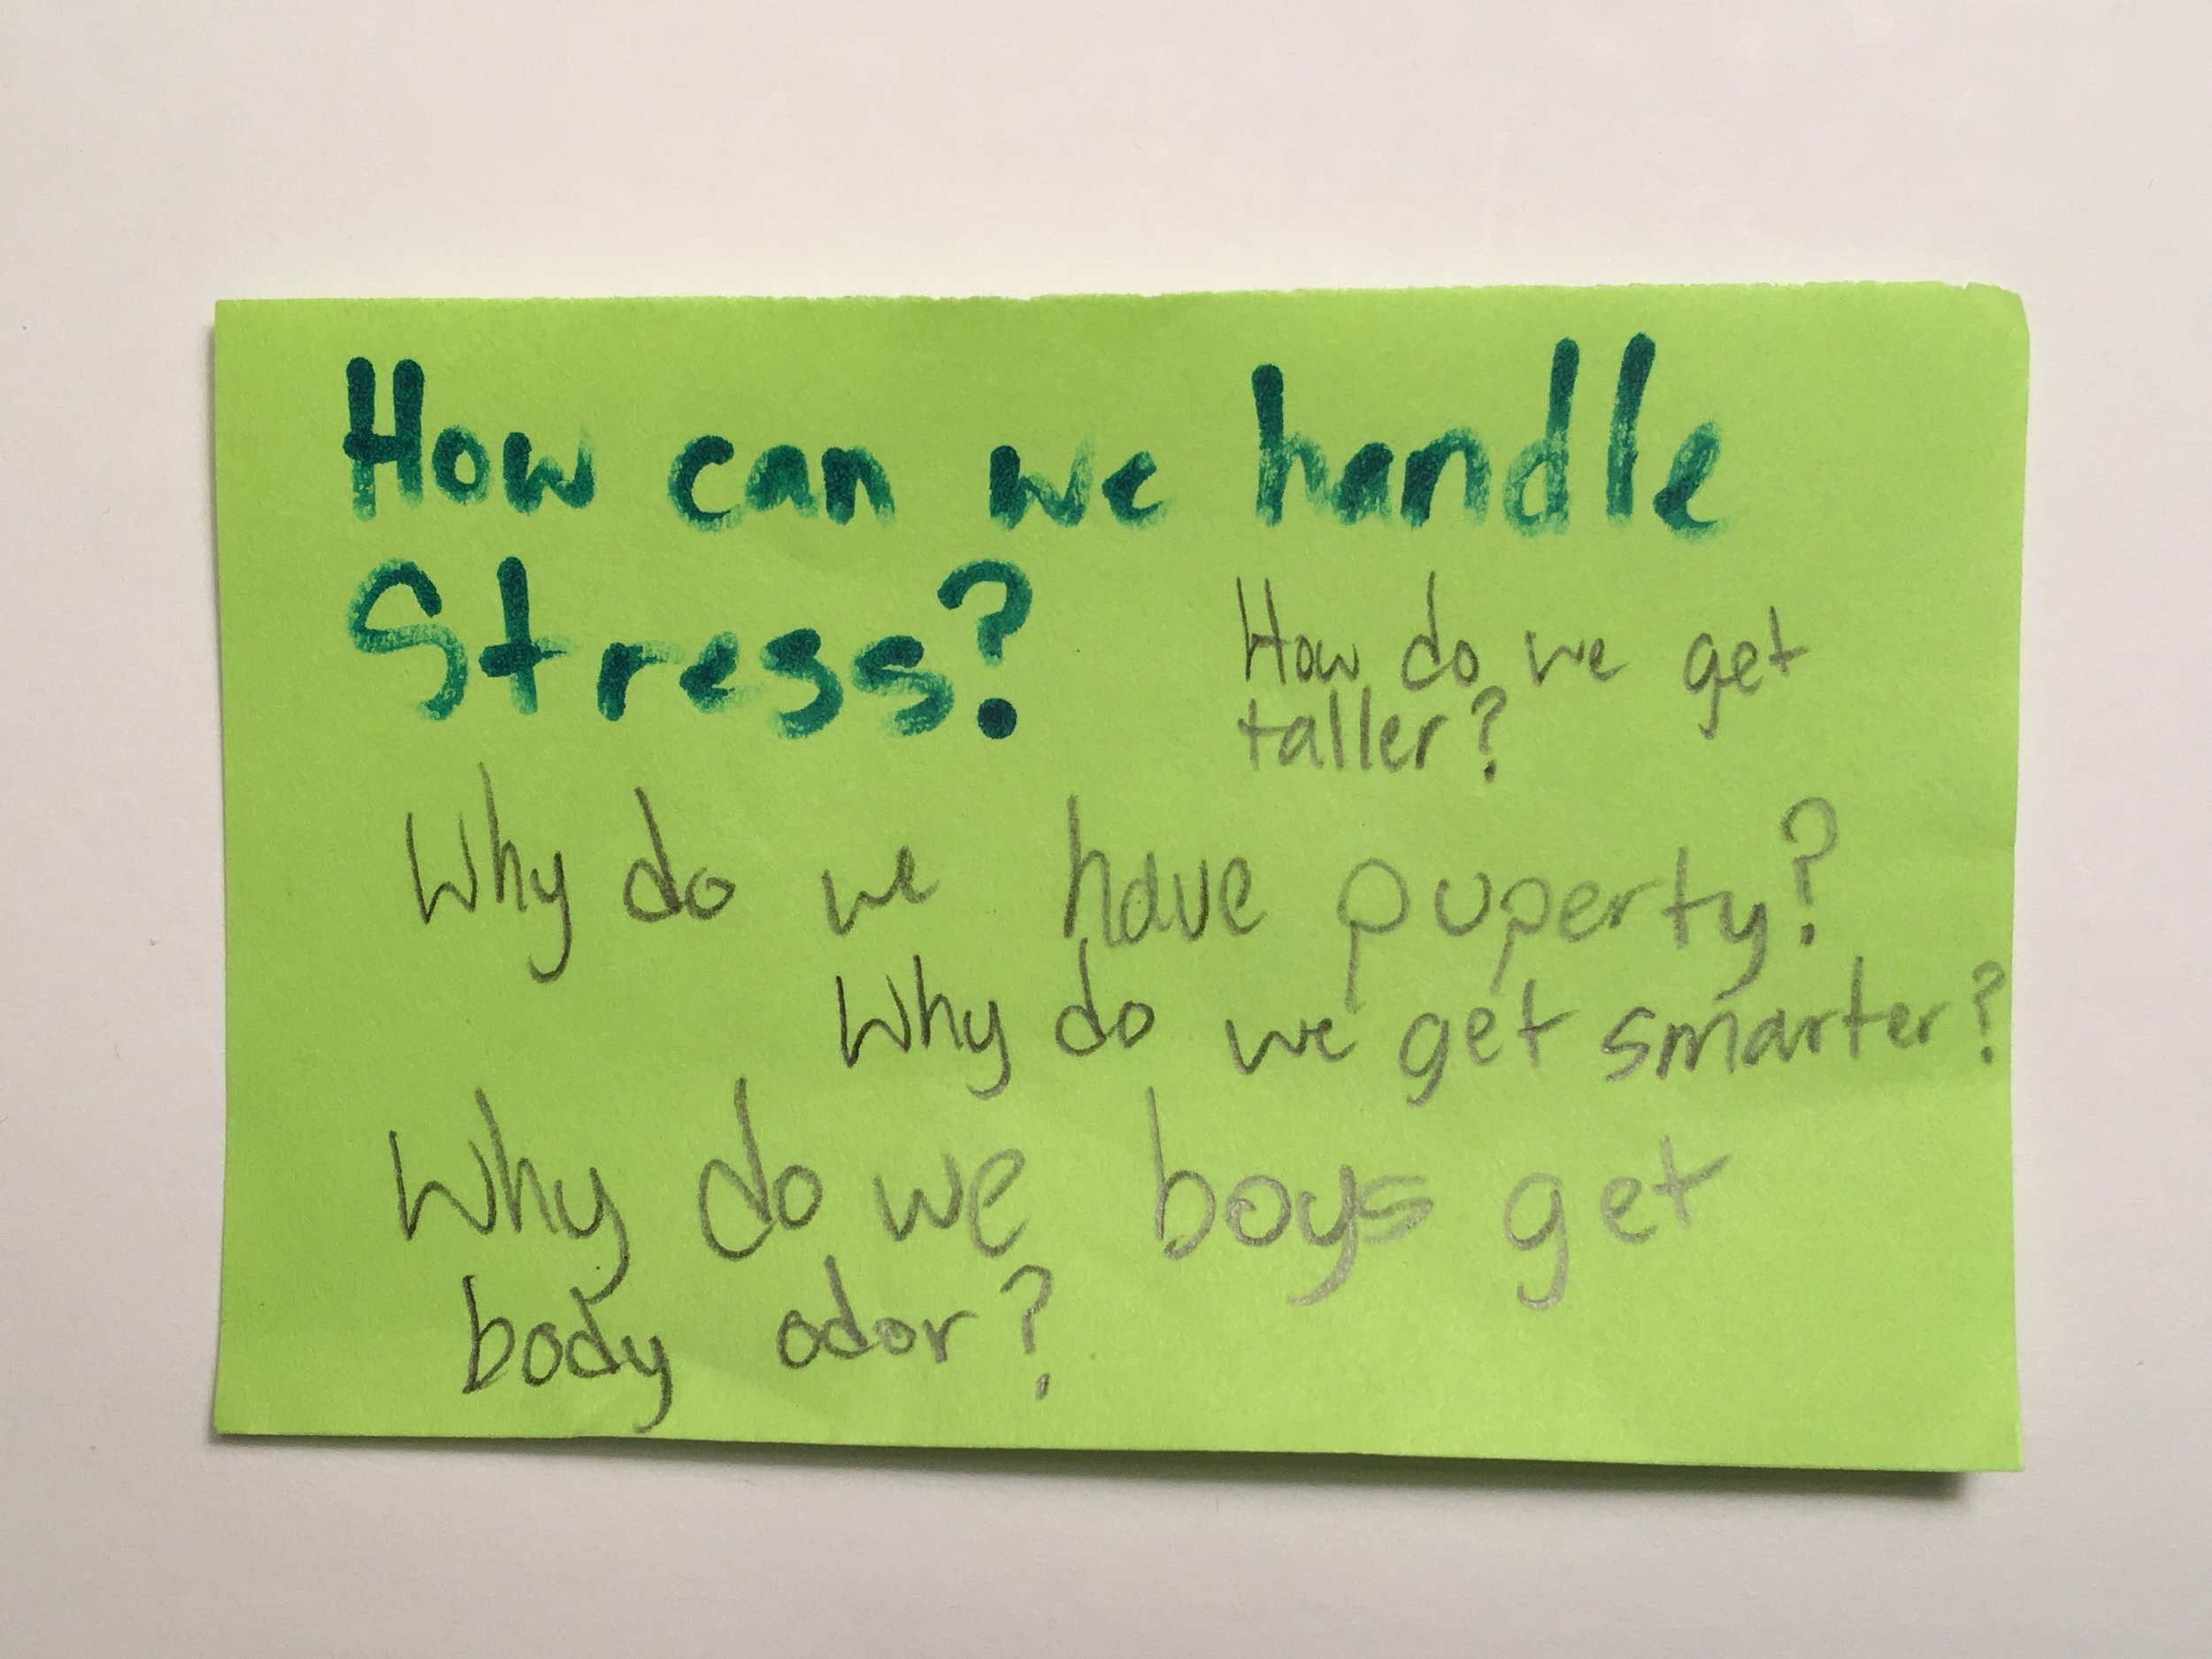 How can we handle
Stress?
How do we get
taller?
Why do we have puperty?
Why do we get smarter?
Why do we boys get
body odor?